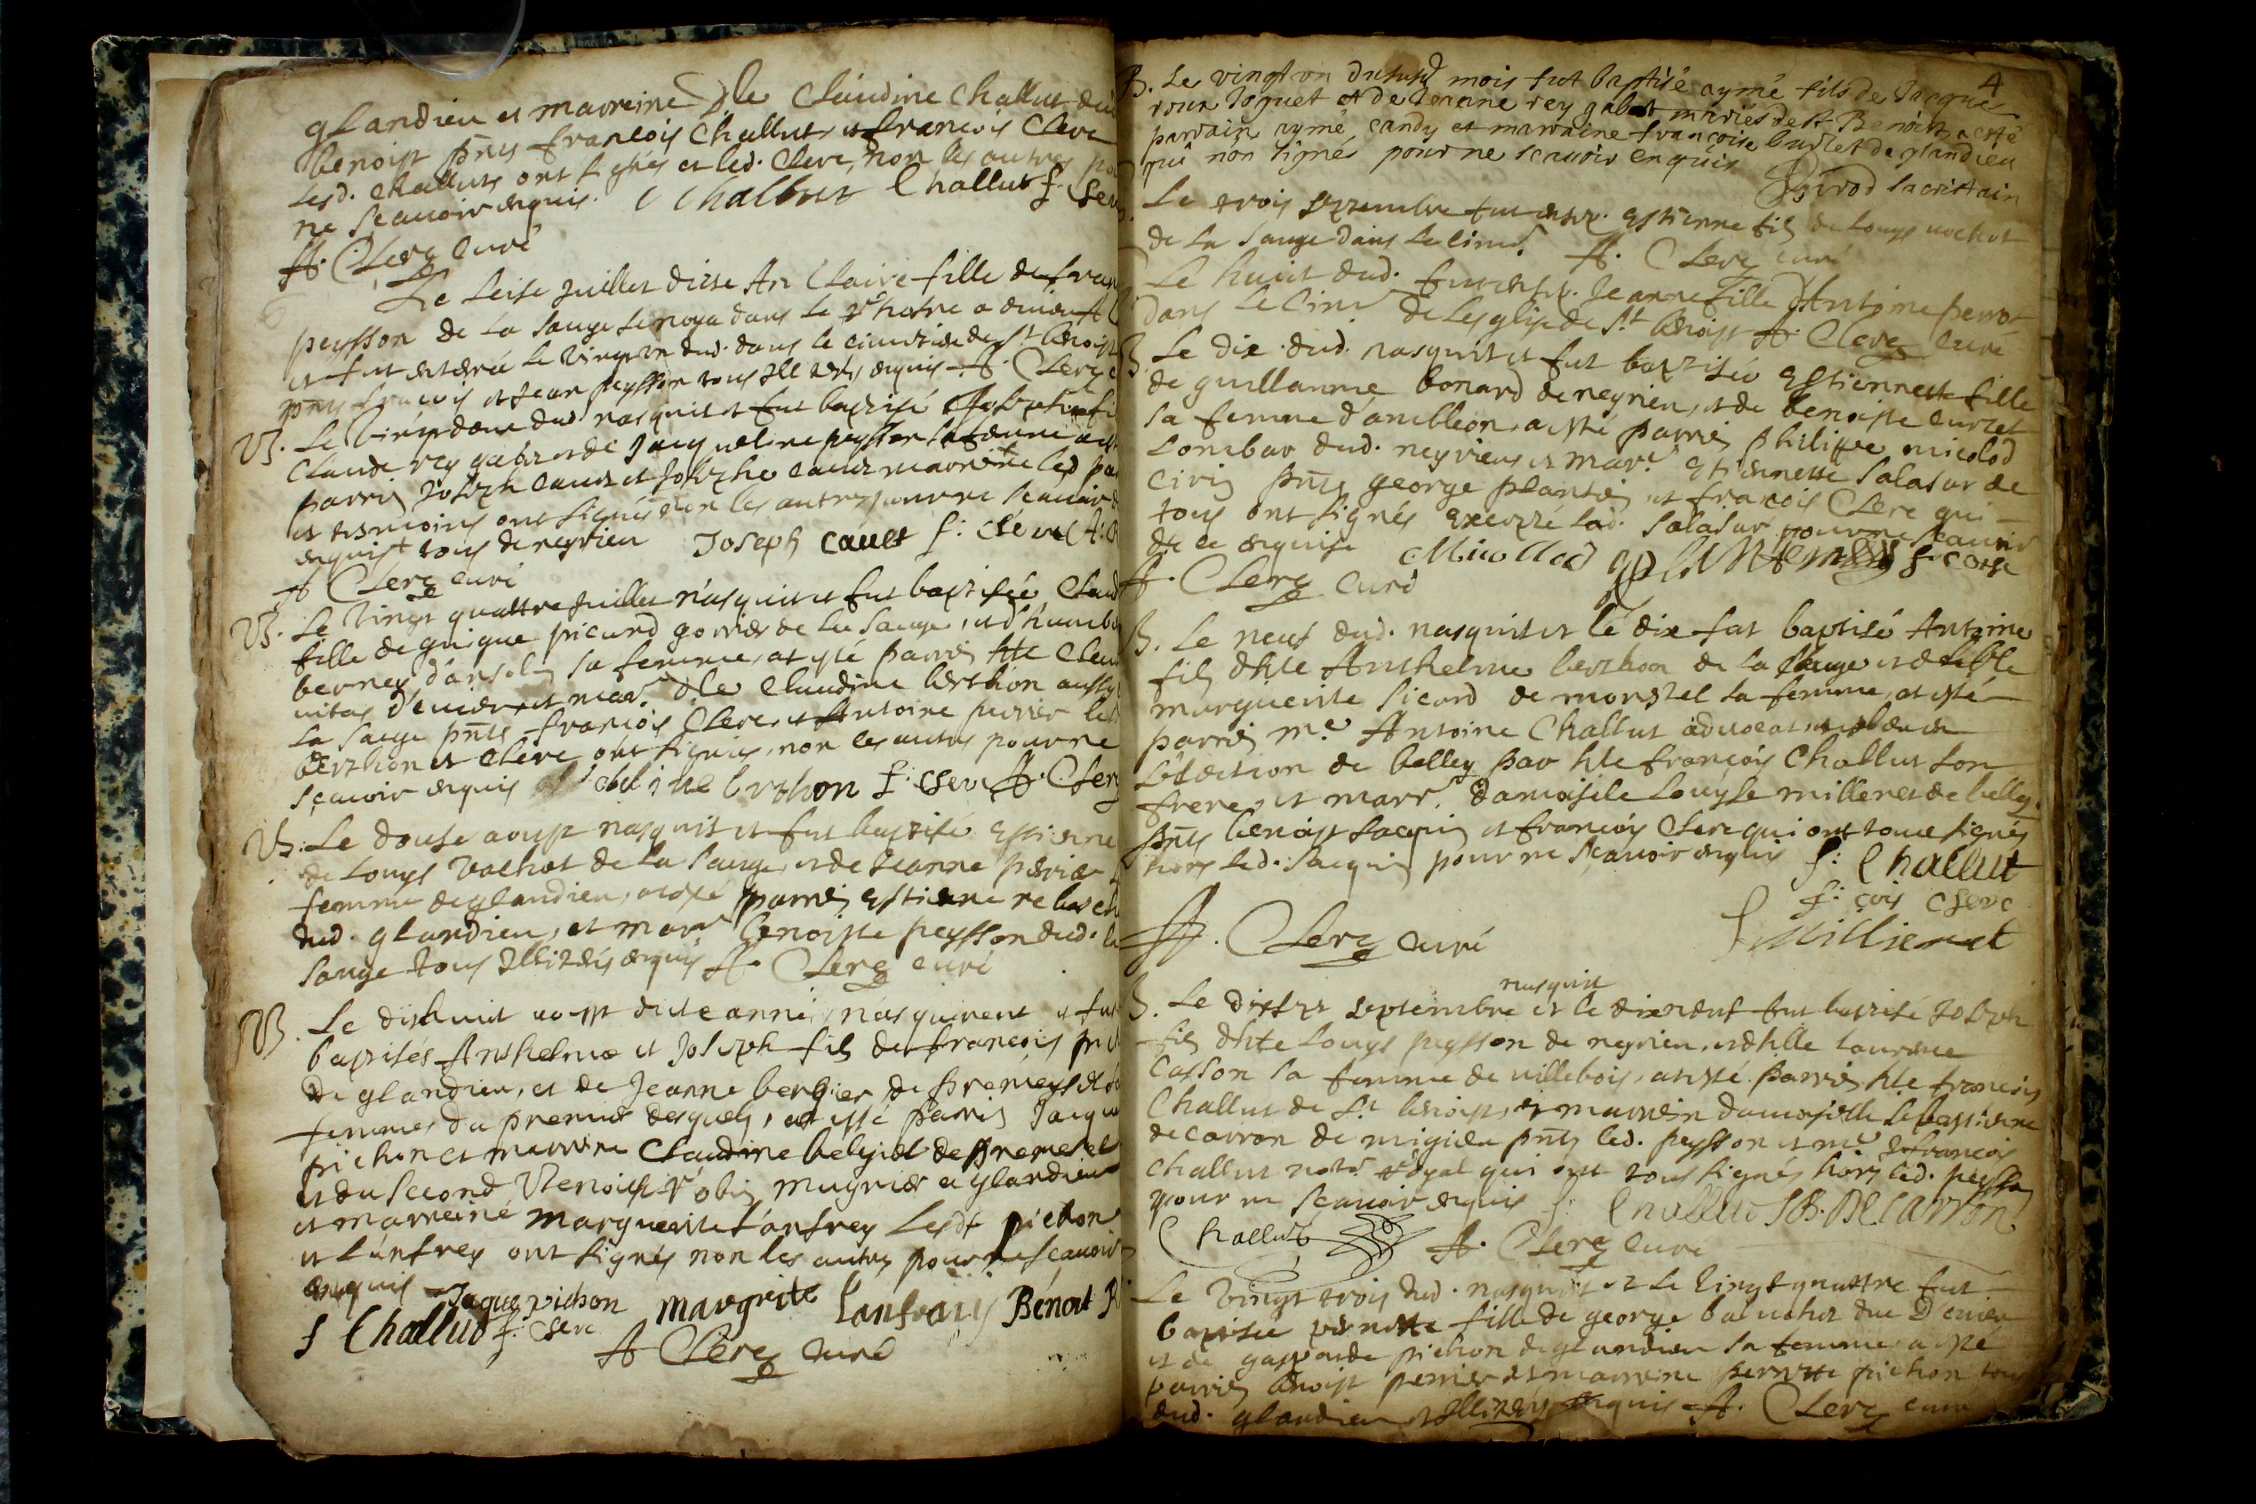 glandieu et marreine dlle Claudine Challut dud
benoist pnts francois Challut, et francois Clerc
Lesd. Challuts ont signés et led. Clerc, non les autres po
ne scauoir enquis. C Challut Challut f. Clerc
A. Clerc curé
Le seise Juillet dicte An Claire fille de fran
peysson de la sauge se noya dans le rhosne a
et fut enterrée le vingt un dud. dans le cimetiere de st benoist
pnts francois et Jean peysson tous illiterés enquis A. Clerc
B. Le vingt deux dud nasquit et fut baptisé Joseph fi
Claude rey gabet et de Jacqueline peysson sa femme a
parrin Joseph Cauet et Josephe Cauet marreine led pa
et tesmoins ont signés non les autres pour ne scauoir
enquis tous de neyrieu Joseph cauet f: clerc A. C
A Clerc curé
B. Le vingt quattre Juillet nasquit et fut baptisée Claud
fille de guigue picard de la sauge, et d'humb
berney sa femme, at esté parrin hte Clau
et mar. dlle Claudine berthon aussy
la sauge pnts francois Clerc, et Antoine perrier les
berthon et Clerc ont signés, non les autres pour ne
scauoir enquis Claudine berthon f: clerc A. Clerc
B. Le douse aoust nasquit et fut baptisé Estienne
de Louys vachat de la sauge, et de Jeanne perier
femme de glandieu, at esté parrin Estienne
dud. glandieu, et marr benoiste peysson dud. la
sauge tous illiterés enquis A. Clerc curé
B. Le dixhuit aoust dite année, nasquirent et fu
baptisés Anthelme et Joseph fils de francois
de glandieu, et de Jeanne bergier de premeysel sa
femme, du premier desquels, at esté parrin Jacque
pichon et marreine Claudine belgiet de premesel
et du second Benoist robin mugnier a glandieu
et marreine marguerite Lanfrey Lesdt pichon
et Lanfrey ont signés non les autres pour ne scauoir
enquis Jaque pichon margrite Lanfray Benoit R
f Challut f: Clerc
A Clerc curé
4
B. Le vingt un dususd mois fut baptisé aymé fils de Jacque
roux Joguet et de Jeanne rey gabet mariés de St Benoist a esté
parrain aymé candy et marraine francoise burlet de glandieu
qui non signés pour ne scauoir enquis Girod sacristain
Le trois septembre fut enter. Estienne fils de Louys vachat
de la sauge dans le cime. A. Clerc curé
Le huict dud. fut enter. Jeanne fille d'Antoine perrot
dans le cime de lesglise de St. benoist A. Clerc curé
B. Le dix dud. nasquit et fut baptisée Estiennette fille
de guillaume bonard de neyrieu, et de benoiste curtet
sa femme d'ambleon, at esté parrin philippe micolod
Lombar dud. neyrieu et mar. Estiennette Saladar de
Cirin pnts george plantin et francois Clerc qui
tous ont signés excepté lad. Saladar pour ne scauoir
de ce enquise Micollod f. Clerc
A. Clerc Curé
B. Le neuf dud. nasquit et le dix fut baptisé Antoine
fils d'hte Anthelme berthon de la sauge et de dlle
marguerite Sicard de morestel sa femme, at esté
parrin me. Antoine Challut aduocat
L'election de belley par hte francois Challut son
frere, et marr. damoiselle Louyse millenet de belley.
pnts benoist sacquin et francois Clerc qui ont tous signés
hors led. sacquin pour ne scauoir enquis f: Challut
f: çois Clerc
A. Clerc curé
L Milliernet
B. Le dixsept septembre nasquit et le dixneuf fut baptisé Joseph
fils d'hte Louys peysson de neyrieu, et d'hlle Laurence
Casson sa femme de villebois, at esté parrin hte francois
Challut de St. benoist, et marrein damoiselle Sebastienne
de carron de migieu pnts led. peysson et me francois
Challut notre royal qui ont tous signés hors led. peysson
pour ne scauoir enquis f: Challut SB. De Carron
Challut A. Clerc curé
Le vingt trois dud. nasquit et le vingt quattre fut
baptisée pernette fille de george
et de gasparde pichon de glandieu sa femme, at esté
parrin benoist perrier et marreine pernette pichon tous
dud. glandieu illiterés enquis A. Clerc curé